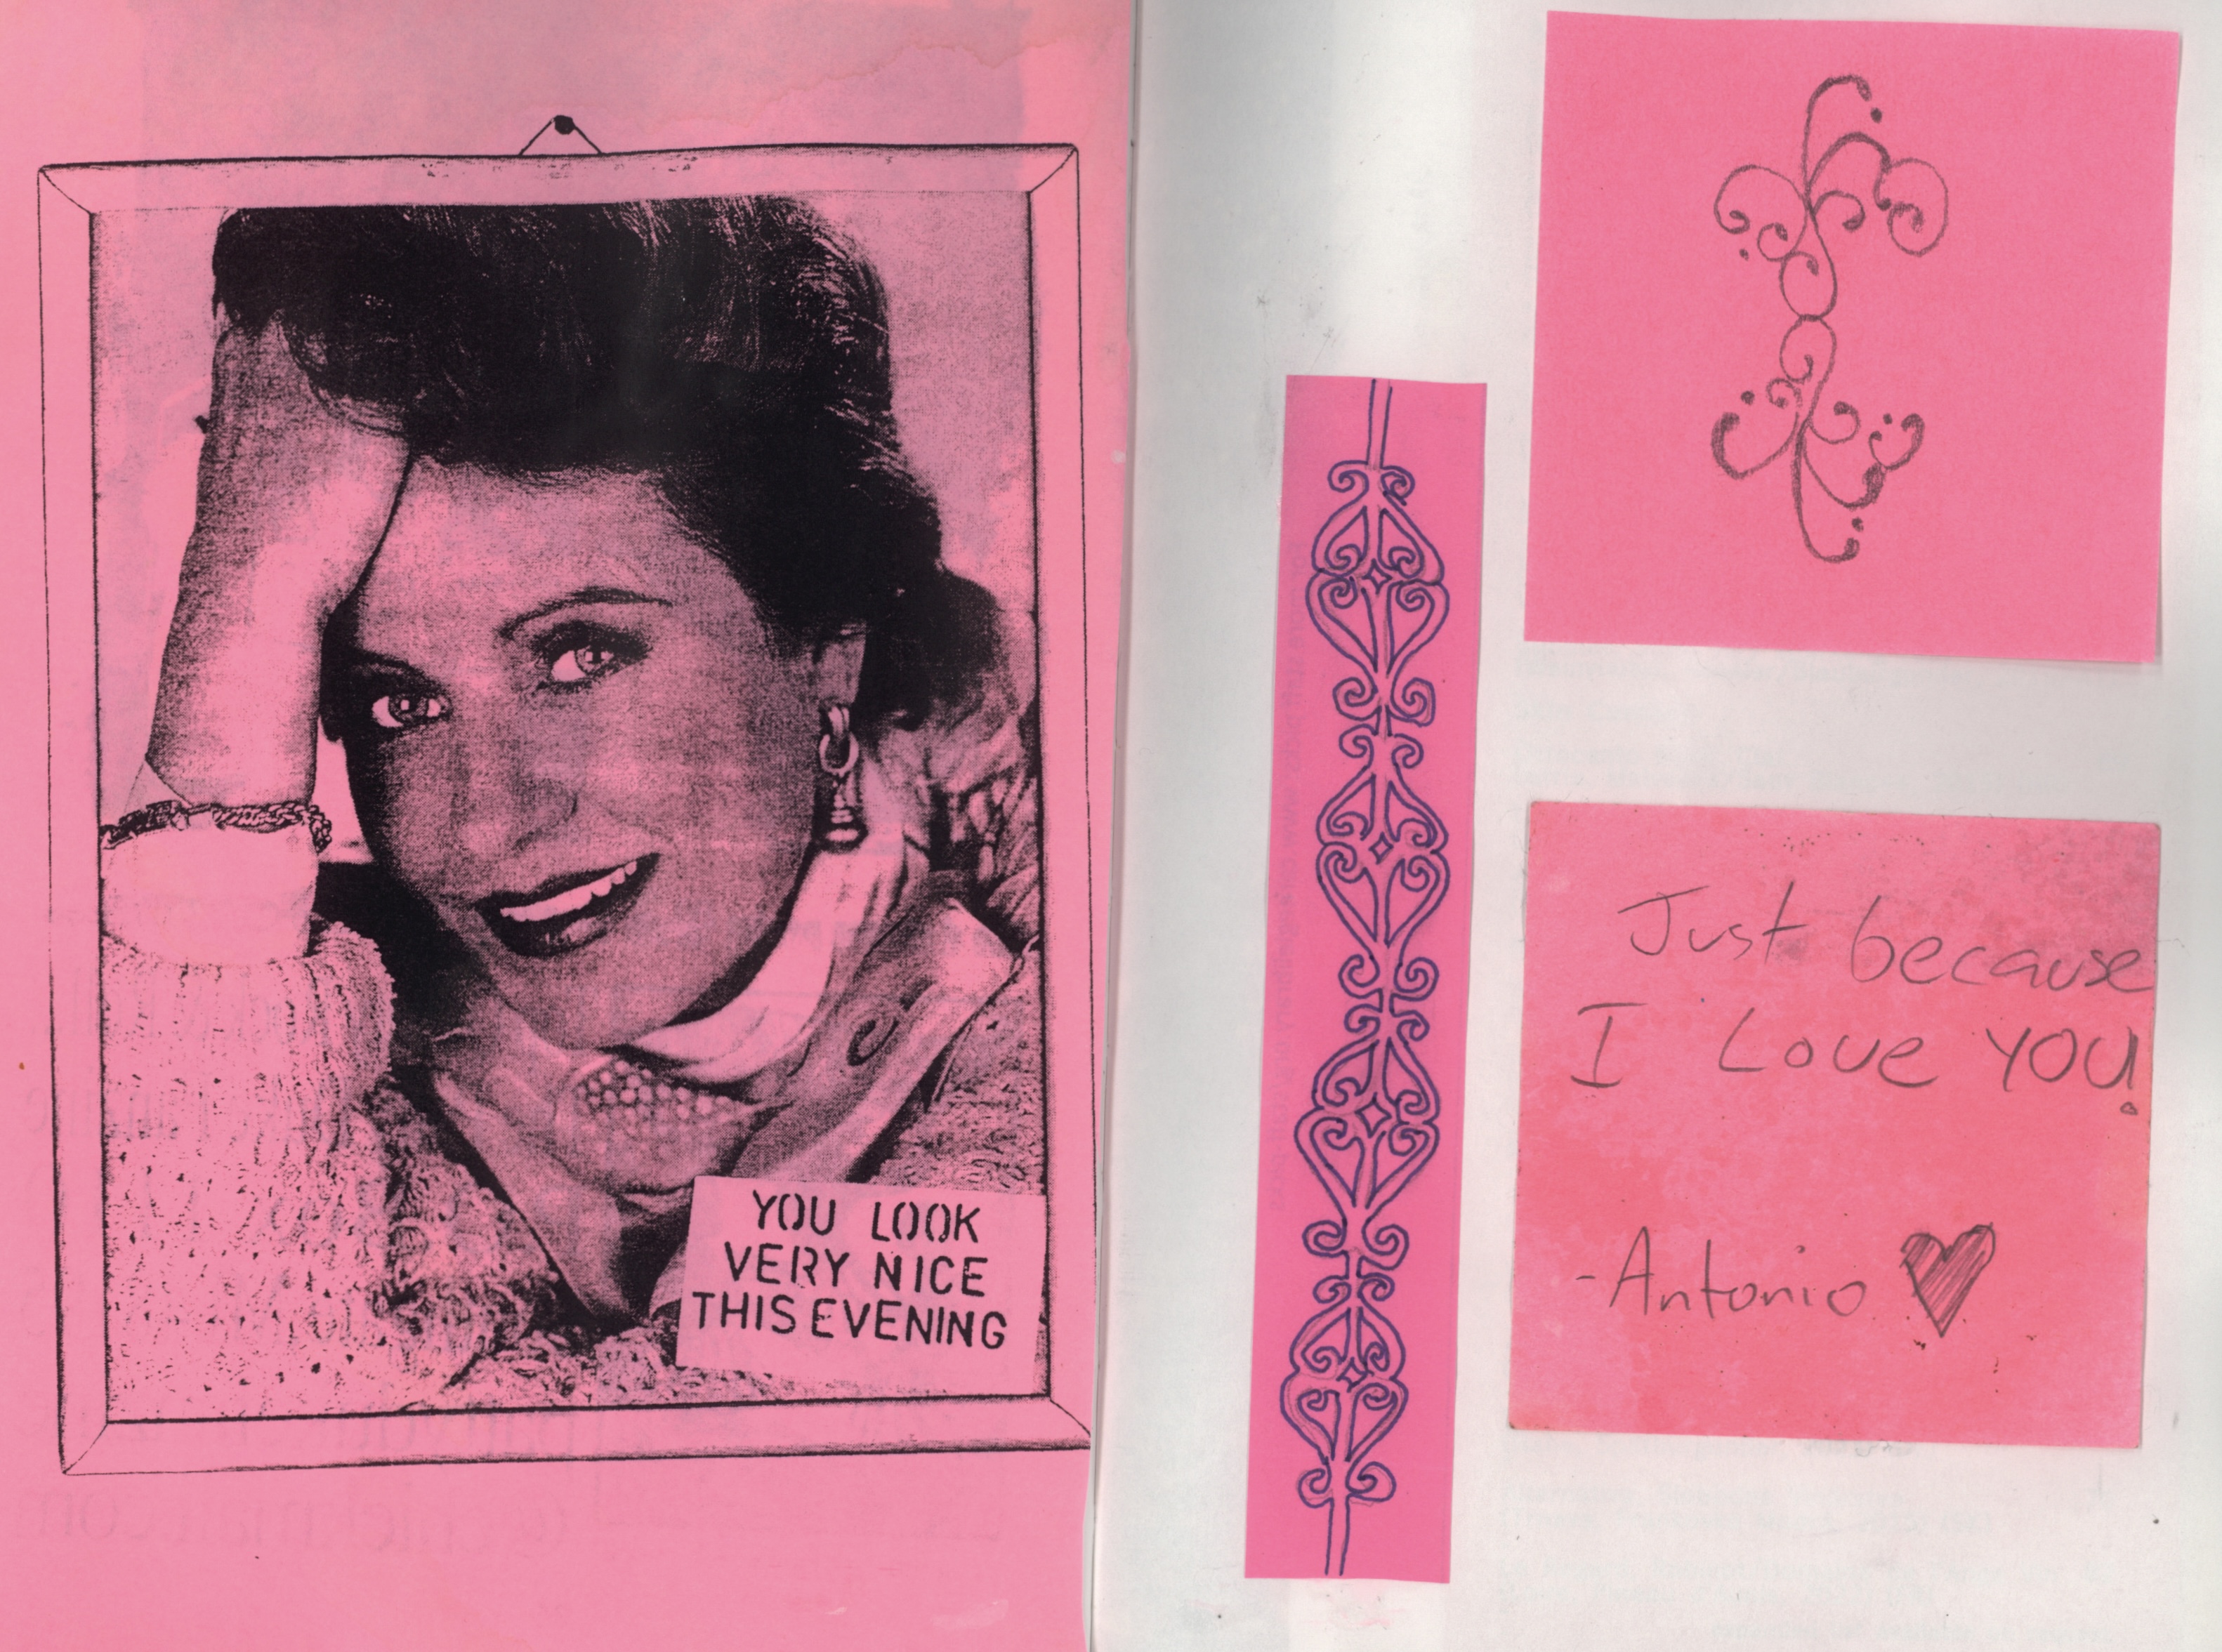 YOU LOOK
VERY NICE
THIS EVENING
Just because
I Love YOU!
-Antonio